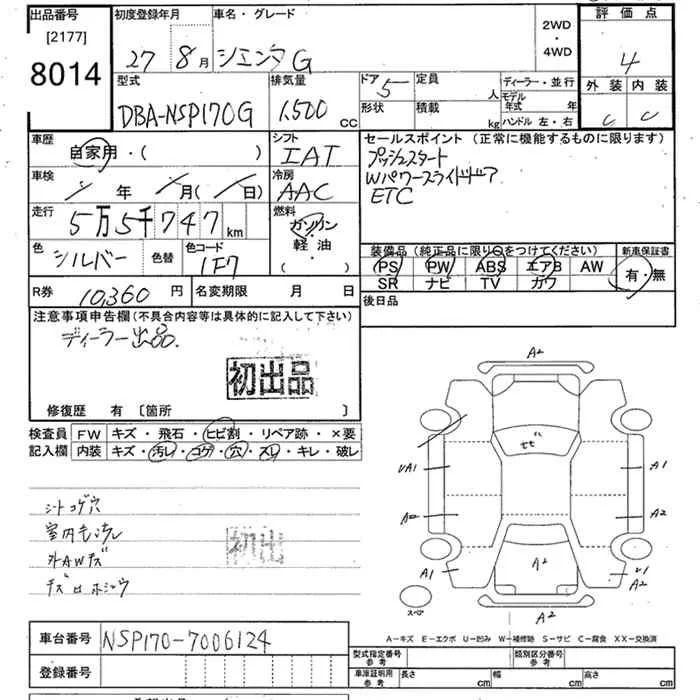 出品番号 初度登録年月 車名・グレード 2WD・4WD 評価点
[2177]
8014 27年 8月 シエンタG 4
型式 排気量 ドア 5 定員 人 ディーラー・並行 外装 内装
DBA-NSP170G 1,500 CC 形状 積載 kg モデル年式 年 ハンドル 左・右 C C
車歴 自家用・( ) シフト IAT セールスポイント (正常に機能するものに限ります)
車検 年 月( 日) 冷房 AAC プッシュスタート
Wパワースライドドア
ETC
走行 5万5千747km 燃料 ガソリン・軽油・( )
色 シルバー 色替 色コード 1F7
装備品(純正品に限り○をつけてください) 新車保証書
PS PW ABS エアB AW 有・無
SR ナビ TV カワ
R券 10,360円 名変期限 月 日 後日品
注意事項申告欄(不具合内容等は具体的に記入して下さい)
ディーラー出品.
初出品
修復歴 有 [箇所 ]
検査員記入欄 FW キズ・飛石・ヒビ割・リペア跡・×要
内装 キズ・汚レ・コゲ・穴・スレ・キレ・破レ
シートコゲ穴
室内モノヨゴレ
外AWキズ
初出
A2
ヒビ
UA1 A1
A2 A2
A1 A2 U1
A2
スペア
A2
A-キズ E-エクボ U-凹み W-補修跡 S-サビ C-腐食 XX-交換済
車台番号 NSP170-7006124
型式指定番号 参考 類別区分番号 参考
登録番号 車庫証明用 参考 長さ cm 幅 cm 高さ cm